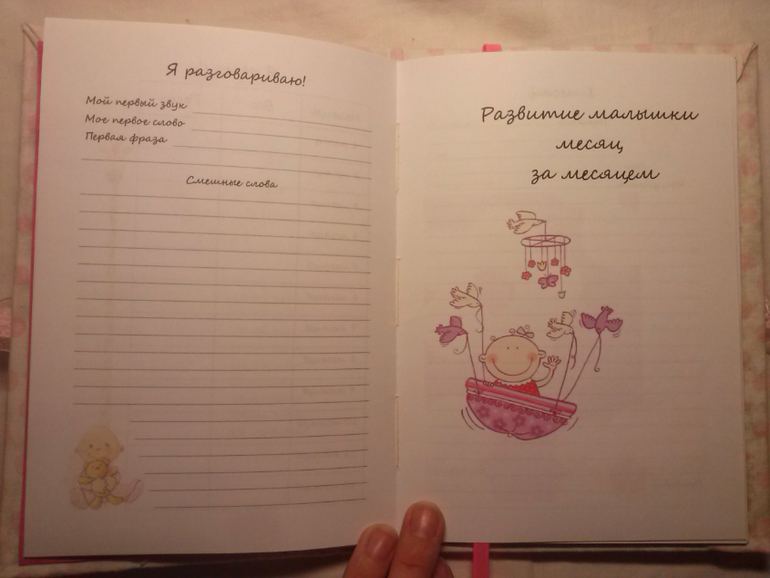 Я разговариваю!
Мой первый звук
Мое первое слово
Первая фраза
Смешные слова
Развитие малышки
месяц
за месяцем